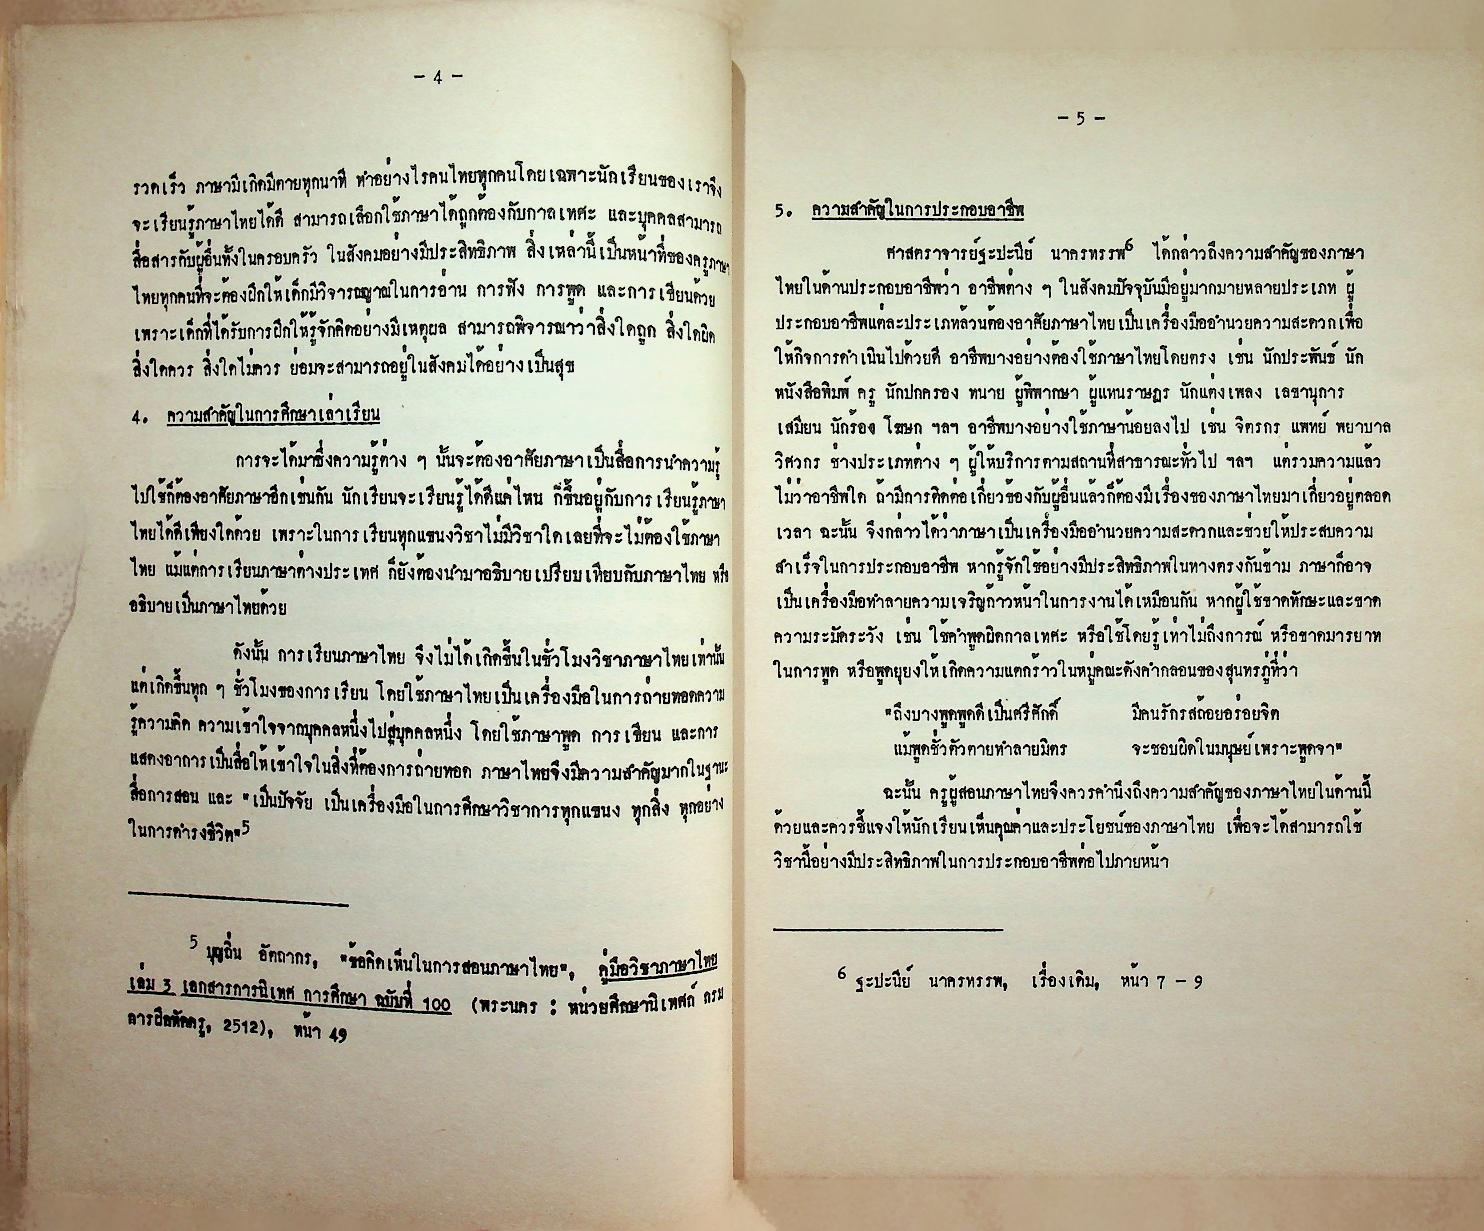 - 4 -
รวดเร็ว ภาษามีเกิดมีตายทุกนาที ทำอย่างไรคนไทยทุกคนโดยเฉพาะนักเรียนของเราจึง
จะเรียนรู้ภาษาไทยได้ดี สามารถเลือกใช้ภาษาได้ถูกต้องกับกาลเทศะ และบุคคลสามารถ
สื่อสารกับผู้อื่นทั้งในครอบครัว ในสังคมอย่างมีประสิทธิภาพ สิ่งเหล่านี้เป็นหน้าที่ของครูภาษา
ไทยทุกคนที่จะต้องฝึกให้เด็กมีวิจารณญาณในการอ่าน การฟัง การพูด และการเขียนด้วย
เพราะเด็กที่ได้รับการฝึกให้รู้จักคิดอย่างมีเหตุผล สามารถพิจารณาว่าสิ่งใดถูก สิ่งใดผิด
สิ่งใดควร สิ่งใดไม่ควร ย่อมจะสามารถอยู่ในสังคมได้อย่างเป็นสุข
4. ความสำคัญในการศึกษาเล่าเรียน
การจะได้มาซึ่งความรู้ต่าง ๆ นั้นจะต้องอาศัยภาษาเป็นสื่อการนำความรู้
ไปใช้ก็ต้องอาศัยภาษาอีกเช่นกัน นักเรียนจะเรียนรู้ได้ดีแค่ไหน ก็ขึ้นอยู่กับการเรียนรู้ภาษา
ไทยได้ดีเพียงใดด้วย เพราะในการเรียนทุกแขนงวิชาไม่มีวิชาใดเลยที่จะไม่ต้องใช้ภาษา
ไทย แม้แต่การเรียนภาษาต่างประเทศ ก็ยังต้องนำมาอธิบายเปรียบเทียบกับภาษาไทย หรือ
อธิบายเป็นภาษาไทยด้วย
ดังนั้น การเรียนภาษาไทย จึงไม่ได้เกิดขึ้นในชั่วโมงวิชาภาษาไทยเท่านั้น
แต่เกิดขึ้นทุก ๆ ชั่วโมงของการเรียน โดยใช้ภาษาไทยเป็นเครื่องมือในการถ่ายทอดความ
รู้ความคิด ความเข้าใจจากบุคคลหนึ่งไปสู่บุคคลหนึ่ง โดยใช้ภาษาพูด การเขียน และการ
แสดงอาการเป็นสื่อให้เข้าใจในสิ่งที่ต้องการถ่ายทอด ภาษาไทยจึงมีความสำคัญมากในฐานะ
สื่อการสอน และ "เป็นปัจจัย เป็นเครื่องมือในการศึกษาวิชาการทุกแขนง ทุกสิ่ง ทุกอย่าง
ในการดำรงชีวิต"5
5 บุญถิ่น อัตถากร, "ข้อคิดเห็นในการสอนภาษาไทย", คู่มือวิชาภาษาไทย
เล่ม 3 เอกสารการนิเทศ การศึกษา ฉบับที่ 100 (พระนคร : หน่วยศึกษานิเทศก์ กรม
การฝึกหัดครู, 2512), หน้า 49
- 5 -
5. ความสำคัญในการประกอบอาชีพ
ศาสตราจารย์ฐะปะนีย์ นาครทรรพ6 ได้กล่าวถึงความสำคัญของภาษา
ไทยในด้านประกอบอาชีพว่า อาชีพต่าง ๆ ในสังคมปัจจุบันมีอยู่มากมายหลายประเภท ผู้
ประกอบอาชีพแต่ละประเภทล้วนต้องอาศัยภาษาไทยเป็นเครื่องมืออำนวยความสะดวกเพื่อ
ให้กิจการดำเนินไปด้วยดี อาชีพบางอย่างต้องใช้ภาษาไทยโดยตรง เช่น นักประพันธ์ นัก
หนังสือพิมพ์ ครู นักปกครอง ทนาย ผู้พิพากษา ผู้แทนราษฎร นักแต่งเพลง เลขานุการ
เสมียน นักร้อง โฆษก ฯลฯ อาชีพบางอย่างใช้ภาษาน้อยลงไป เช่น จิตรกร แพทย์ พยาบาล
วิศวกร ช่างประเภทต่าง ๆ ผู้ให้บริการตามสถานที่สาธารณะทั่วไป ฯลฯ แต่รวมความแล้ว
ไม่ว่าอาชีพใด ถ้ามีการติดต่อเกี่ยวข้องกับผู้อื่นแล้วก็ต้องมีเรื่องของภาษาไทยมาเกี่ยวอยู่ตลอด
เวลา ฉะนั้น จึงกล่าวได้ว่าภาษาเป็นเครื่องมืออำนวยความสะดวกและช่วยให้ประสบความ
สำเร็จในการประกอบอาชีพ หากรู้จักใช้อย่างมีประสิทธิภาพในทางตรงกันข้าม ภาษาก็อาจ
เป็นเครื่องมือทำลายความเจริญก้าวหน้าในการงานได้เหมือนกัน หากผู้ใช้ขาดทักษะและขาด
ความระมัดระวัง เช่น ใช้คำพูดผิดกาลเทศะ หรือใช้โดยรู้เท่าไม่ถึงการณ์ หรือขาดมารยาท
ในการพูด หรือพูดยุยงให้เกิดความแตกร้าวในหมู่คณะดังคำกลอนของสุนทรภู่ที่ว่า
"ถึงบางพูดพูดดีเป็นศรีศักดิ์ มีคนรักรสถ้อยอร่อยจิต
แม้พูดชั่วตัวตายทำลายมิตร จะชอบผิดในมนุษย์เพราะพูดจา"
ฉะนั้น ครูผู้สอนภาษาไทยจึงควรคำนึงถึงความสำคัญของภาษาไทยในด้านนี้
ด้วยและควรชี้แจงให้นักเรียนเห็นคุณค่าและประโยชน์ของภาษาไทย เพื่อจะได้สามารถใช้
วิชานี้อย่างมีประสิทธิภาพในการประกอบอาชีพต่อไปภายหน้า
6 ฐะปะนีย์ นาครทรรพ, เรื่องเดิม, หน้า 7 - 9